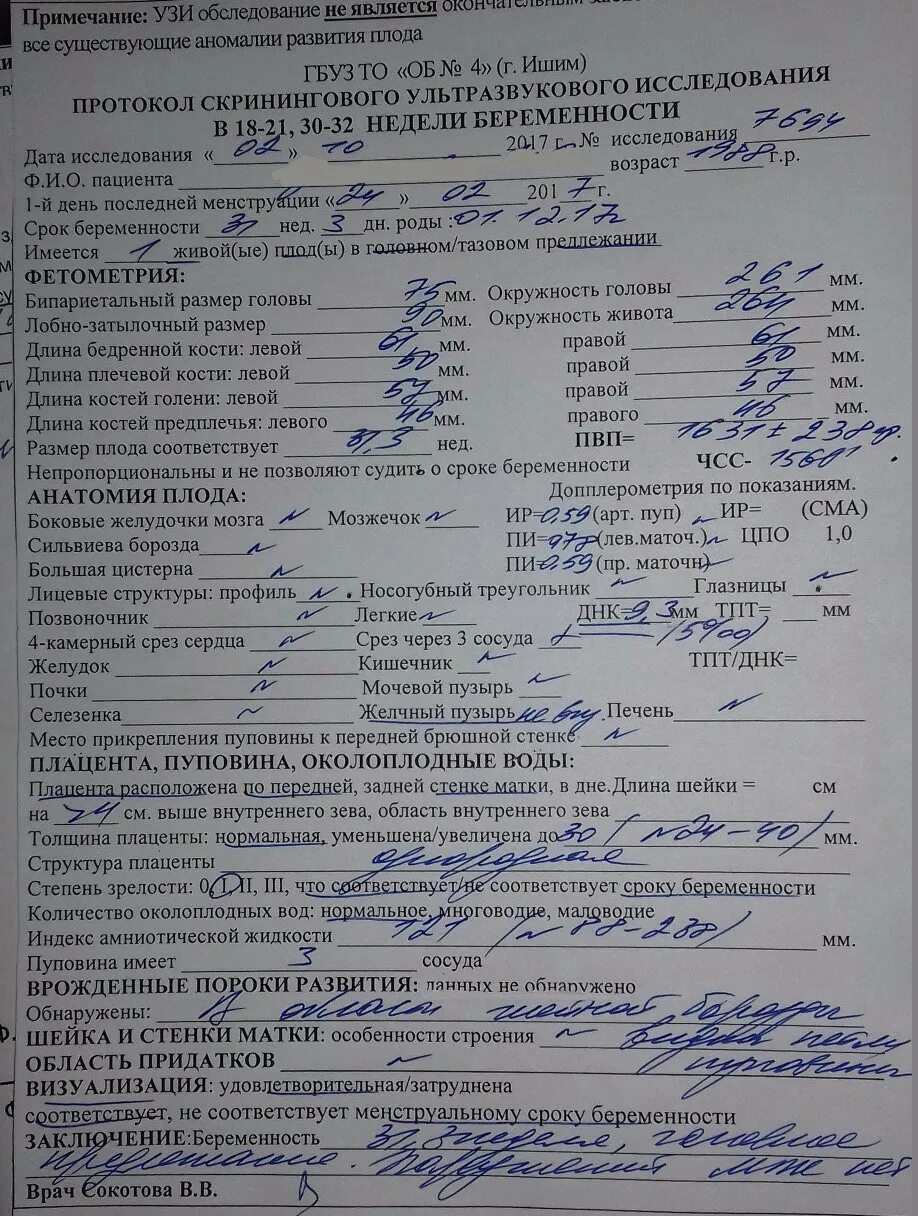 Примечание: УЗИ обследование не является окончательным
все существующие аномалии развития плода
ГБУЗ ТО «ОБ № 4» (г. Ишим)
ПРОТОКОЛ СКРИНИНГОВОГО УЛЬТРАЗВУКОВОГО ИССЛЕДОВАНИЯ
В 18-21, 30-32 НЕДЕЛИ БЕРЕМЕННОСТИ
Дата исследования «02» 10 2017 г. № исследования 7694
Ф.И.О. пациента возраст 1988 г.р.
1-й день последней менструации «24» 02 2017 г.
Срок беременности 31 нед. 3 дн. роды: 01.12.17г
Имеется 1 живой(ые) плод(ы) в головном/тазовом предлежании
ФЕТОМЕТРИЯ:
Бипариетальный размер головы 75 мм. Окружность головы 261 мм.
Лобно-затылочный размер 90 мм. Окружность живота 264 мм.
Длина бедренной кости: левой 61 мм. правой 61 мм.
Длина плечевой кости: левой 50 мм. правой 50 мм.
Длина костей голени: левой 57 мм. правой 57 мм.
Длина костей предплечья: левого 46 мм. правого 46 мм.
Размер плода соответствует 31,3 нед. ПВП= 1631 ± 238 гр.
Непропорциональны и не позволяют судить о сроке беременности ЧСС- 156
АНАТОМИЯ ПЛОДА: Допплерометрия по показаниям.
Боковые желудочки мозга N Мозжечок N ИР=0,59 (арт. пуп) N ИР= (СМА)
Сильвиева борозда N ПИ= (лев.маточ.) N ЦПО 1,0
Большая цистерна N ПИ=0.59 (пр. маточн) N
Лицевые структуры: профиль N . Носогубный треугольник N Глазницы N
Позвоночник N Легкие N ДНК=9,3 мм ТПТ= мм
4-камерный срез сердца N Срез через 3 сосуда
Желудок N Кишечник N ТПТ/ДНК=
Почки N Мочевой пузырь N
Селезенка N Желчный пузырь Печень N
Место прикрепления пуповины к передней брюшной стенке N
ПЛАЦЕНТА, ПУПОВИНА, ОКОЛОПЛОДНЫЕ ВОДЫ:
Плацента расположена по передней, задней стенке матки, в дне. Длина шейки = см
на см. выше внутреннего зева, область внутреннего зева
Толщина плаценты: нормальная, уменьшена/увеличена до 30 (N 24-40) мм.
Структура плаценты однородная
Степень зрелости: 0, I, II, III, что соответствует/не соответствует сроку беременности
Количество околоплодных вод: нормальное, многоводие, маловодие
Индекс амниотической жидкости 121 (N 88-238) мм.
Пуповина имеет 3 сосуда
ВРОЖДЕННЫЕ ПОРОКИ РАЗВИТИЯ: данных не обнаружено
Обнаружены: В области шейной борозды
ШЕЙКА И СТЕНКИ МАТКИ: особенности строения N видна петля
ОБЛАСТЬ ПРИДАТКОВ N пуповины
ВИЗУАЛИЗАЦИЯ: удовлетворительная/затруднена
соответствует, не соответствует менструальному сроку беременности
ЗАКЛЮЧЕНИЕ: Беременность 31,3 неделя, головное
предлежание. Нарушений мпк нет
Врач Сокотова В.В.